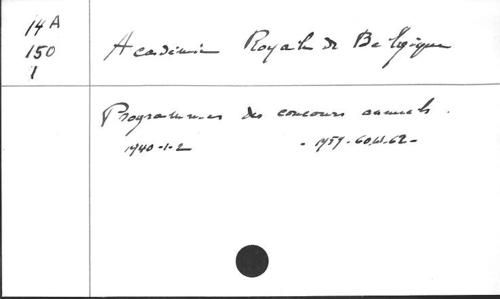 14A
150
1
Académie Royale de Belgique
Programmes des concours annuels.
1940-1-2 - 1959-60.61-62-